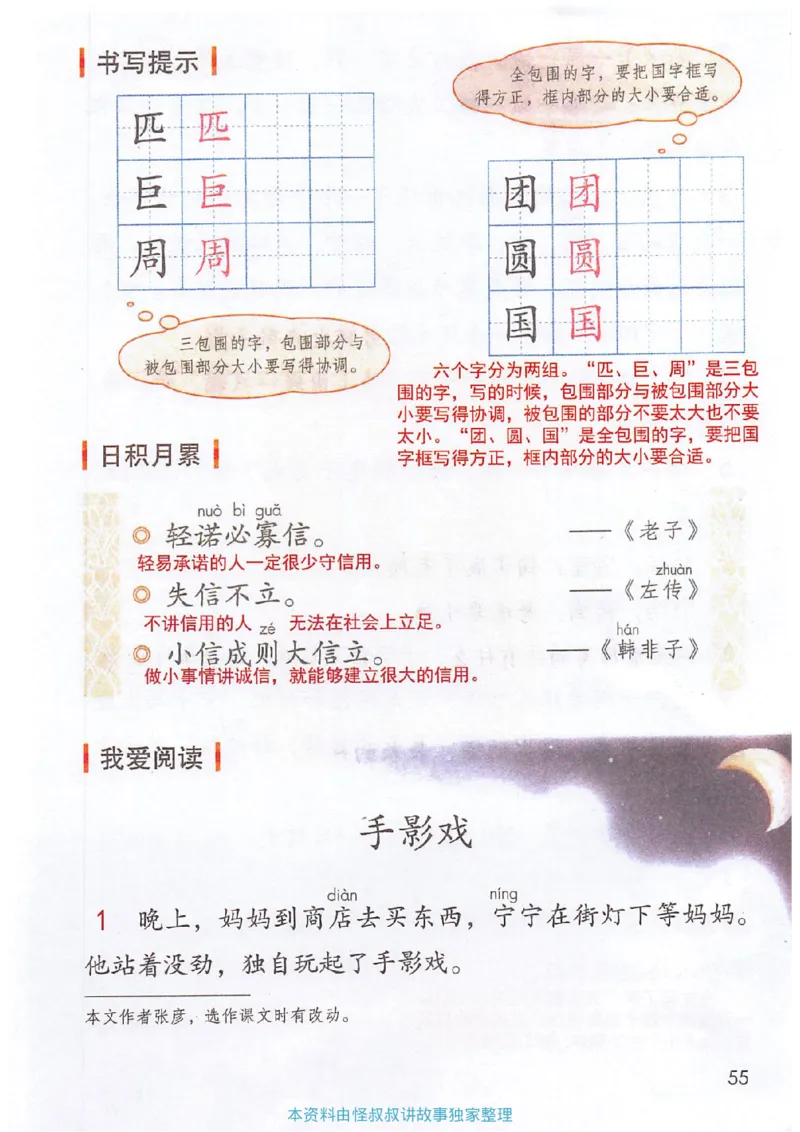 书写提示
全包围的字，要把国字框写
得方正，框内部分的大小要合适。
匹 匹
巨 巨
周 周
团 团
圆 圆
国 国
三包围的字，包围部分与
被包围部分大小要写得协调。
六个字分为两组。“匹、巨、周”是三包
围的字，写的时候，包围部分与被包围部分大
小要写得协调，被包围的部分不要太大也不要
太小。“团、圆、国”是全包围的字，要把国
字框写得方正，框内部分的大小要合适。
日积月累
nuò bì guǎ
◎ 轻诺必寡信。 ——《老子》
轻易承诺的人一定很少守信用。
zhuàn
◎ 失信不立。 ——《左传》
不讲信用的人 无法在社会上立足。
zé hán
◎ 小信成则大信立。 ——《韩非子》
做小事情讲诚信，就能够建立很大的信用。
我爱阅读
手影戏
diàn níng
1 晚上，妈妈到商店去买东西，宁宁在街灯下等妈妈。
他站着没劲，独自玩起了手影戏。
本文作者张彦，选作课文时有改动。
55
本资料由怪叔叔讲故事独家整理